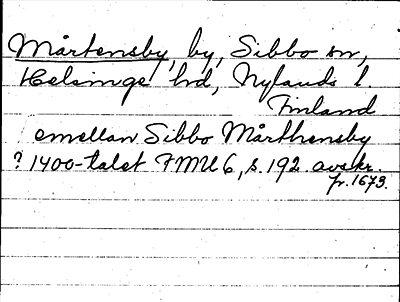 Mårtensby, by, Sibbo sn,
Helsinge hd, Nylands l
Finland
emellan Sibbo Mårthensby
? 1400-talet FMU 6, s. 192. avskr.
fr. 1673.